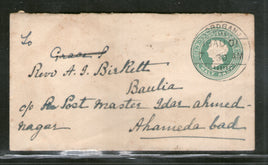 To
Grace P
Revd A. I. Birkett
Baulia
c/o Post Master Idar ahmed-
nagar
Ahamedabad
HALF ANNA